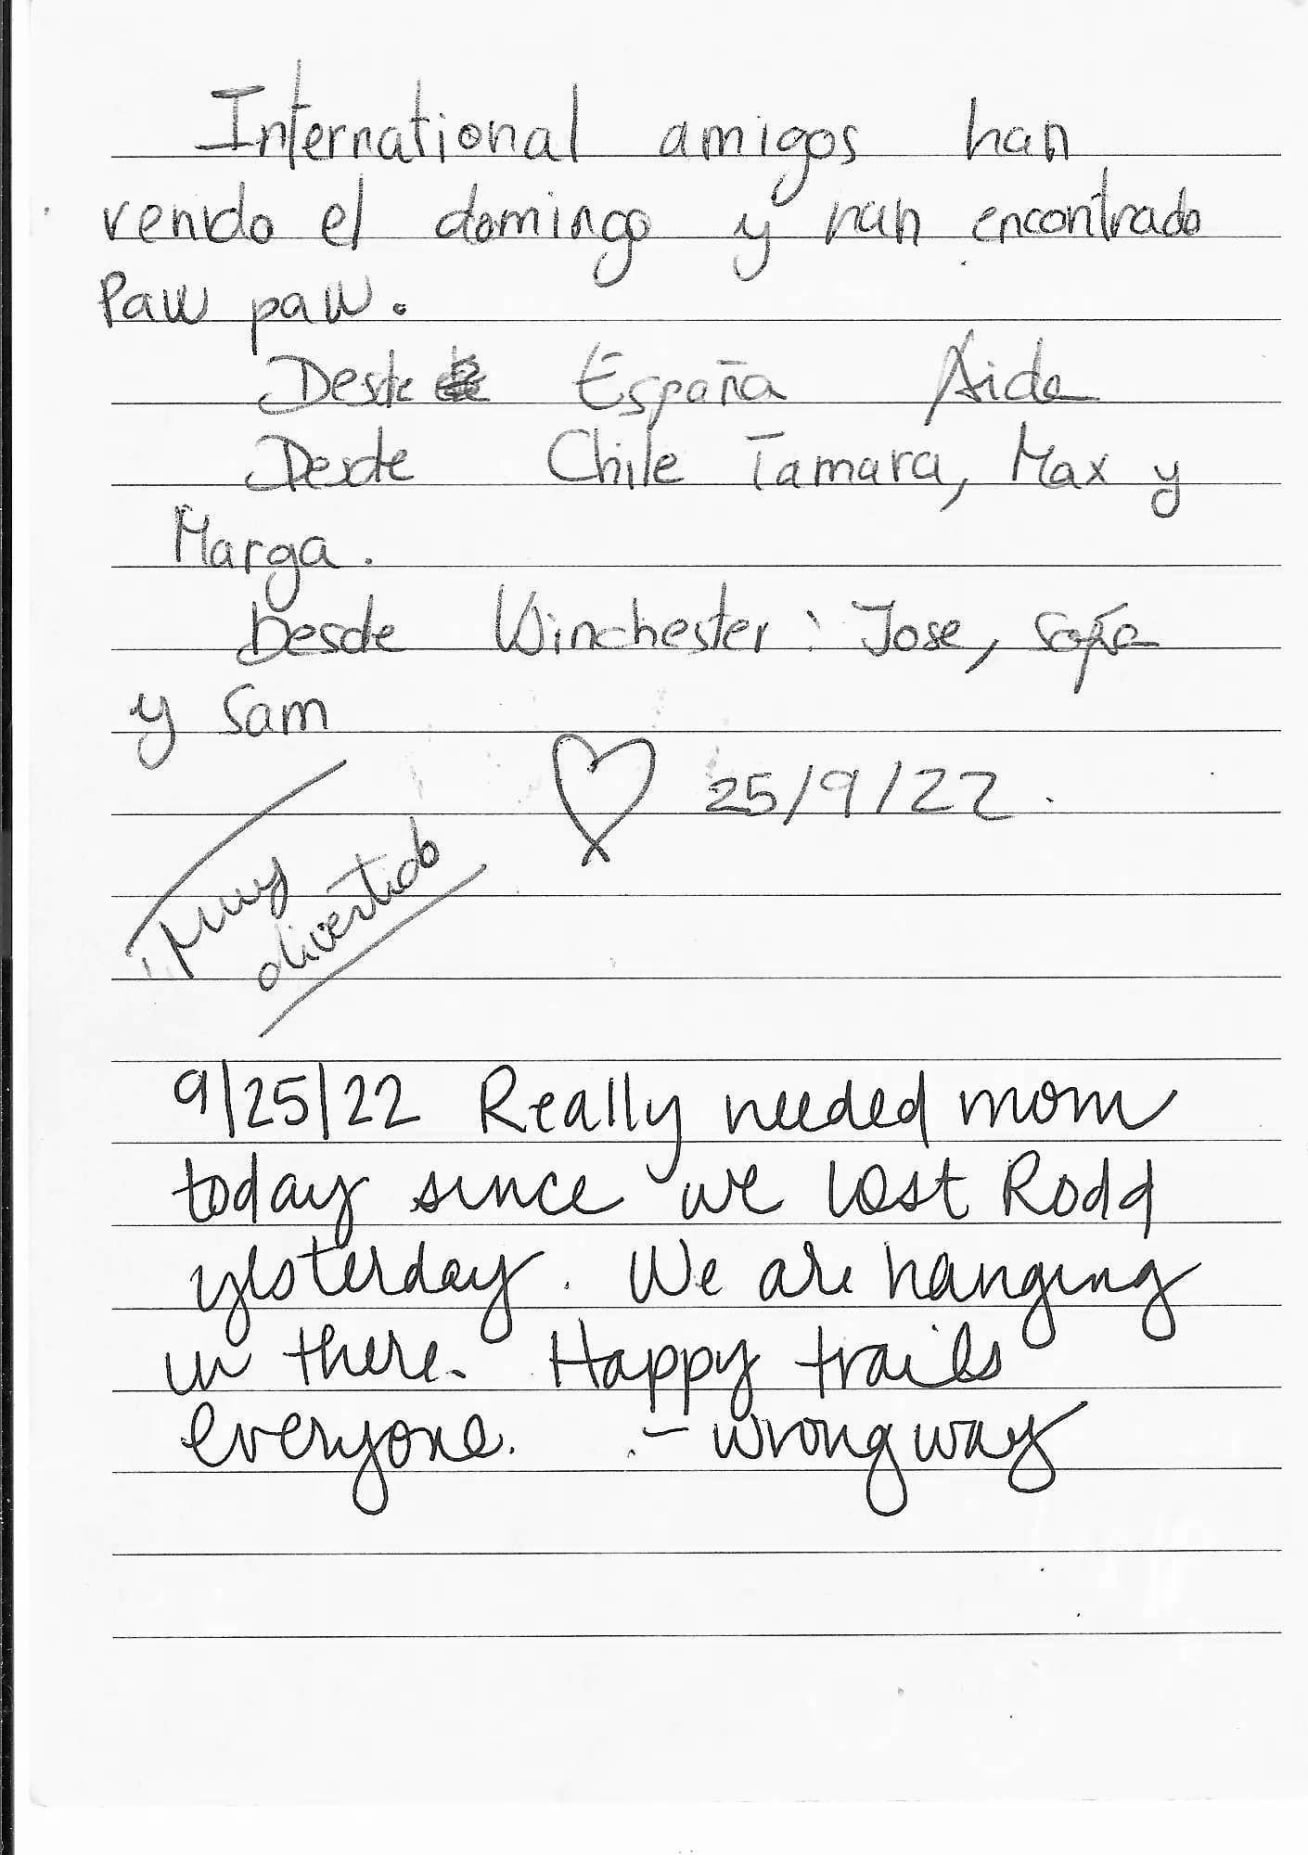 International amigos han
venido el domingo y han encontrado
Paw paw.
Desde España Aida
Desde Chile Tamara, Max y
Marga.
Desde Winchester: Jose, Sofía
y Sam
♡ 25/9/22.
¡Muy
divertido
9/25/22 Really needed mom
today since we lost Rodd
yesterday. We are hanging
in there. Happy trails
everyone. - wrong way